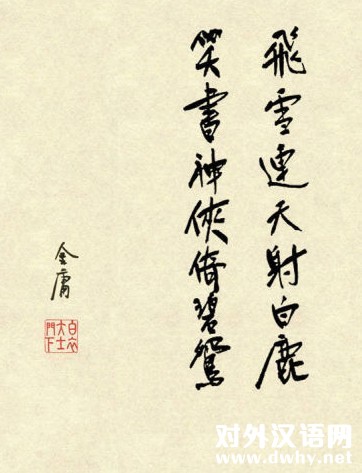 飛雪連天射白鹿
笑書神俠倚碧鴛
金庸
白衣
大士
門下
对外汉语网
www.dwhy.net